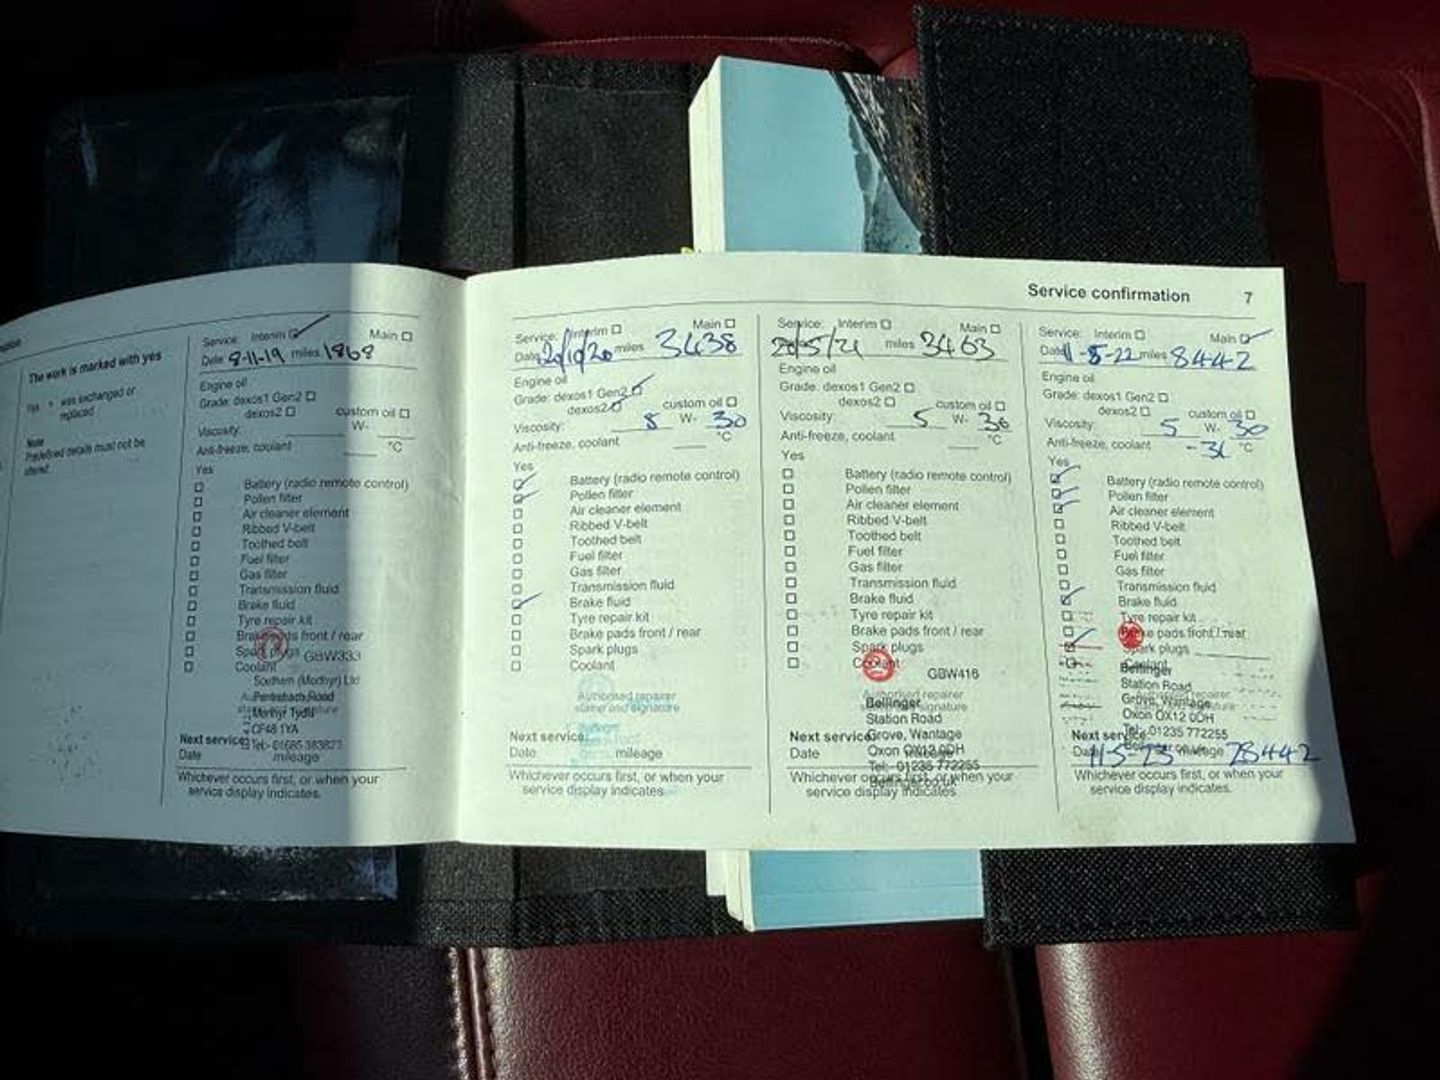 Service confirmation 7
The work is marked with yes
Yes = was exchanged or
replaced
Note
Predefined details must not be
altered.
Service: Interim Main
Date 8-11-19 miles 1868
Engine oil
Grade: dexos1 Gen2
dexos2 custom oil
Viscosity: W-
Anti-freeze, coolant °C
Yes
Battery (radio remote control)
Pollen filter
Air cleaner element
Ribbed V-belt
Toothed belt
Fuel filter
Gas filter
Transmission fluid
Brake fluid
Tyre repair kit
Brake pads front / rear
Spark plugs
GBW333
Coolant
Southern (Merthyr) Ltd
Pentrebach Road
Merthyr Tydfil
CF48 1YA
Tel:- 01685 383823
Next service:
Date mileage
Whichever occurs first, or when your
service display indicates.
Service: Interim Main
Date 20/10/20 miles 3438
Engine oil
Grade: dexos1 Gen2
dexos2 custom oil
Viscosity: W- 30
Anti-freeze, coolant °C
Yes
Battery (radio remote control)
Pollen filter
Air cleaner element
Ribbed V-belt
Toothed belt
Fuel filter
Gas filter
Transmission fluid
Brake fluid
Tyre repair kit
Brake pads front / rear
Spark plugs
Coolant
Authorised repairer
stamp and signature
Next service:
Date mileage
Whichever occurs first, or when your
service display indicates.
Service: Interim Main
20/5/21 miles 3463
Engine oil
Grade: dexos1 Gen2
dexos2 custom oil
Viscosity: 5 W- 30
Anti-freeze, coolant °C
Yes
Battery (radio remote control)
Pollen filter
Air cleaner element
Ribbed V-belt
Toothed belt
Fuel filter
Gas filter
Transmission fluid
Brake fluid
Tyre repair kit
Brake pads front / rear
Spark plugs
Coolant
GBW416
Authorised repairer
stamp and signature
Bellinger
Station Road
Grove, Wantage
Oxon OX12 0DH
Tel:- 01235 772255
Bellinger.co.uk
Next service:
Date
Whichever occurs first, or when your
service display indicates
Service: Interim Main
Date 11-5-22 miles 8442
Engine oil
Grade: dexos1 Gen2
dexos2 custom oil
Viscosity: 5 W- 30
Anti-freeze, coolant °C
Yes
Battery (radio remote control)
Pollen filter
Air cleaner element
Ribbed V-belt
Toothed belt
Fuel filter
Gas filter
Transmission fluid
Brake fluid
Tyre repair kit
Brake pads front / rear
Spark plugs
Coolant
Bellinger
Station Road
Grove, Wantage
Oxon OX12 0DH
Tel:- 01235 772255
Next service:
Date 11-5-23 mileage 28442
Whichever occurs first, or when your
service display indicates.